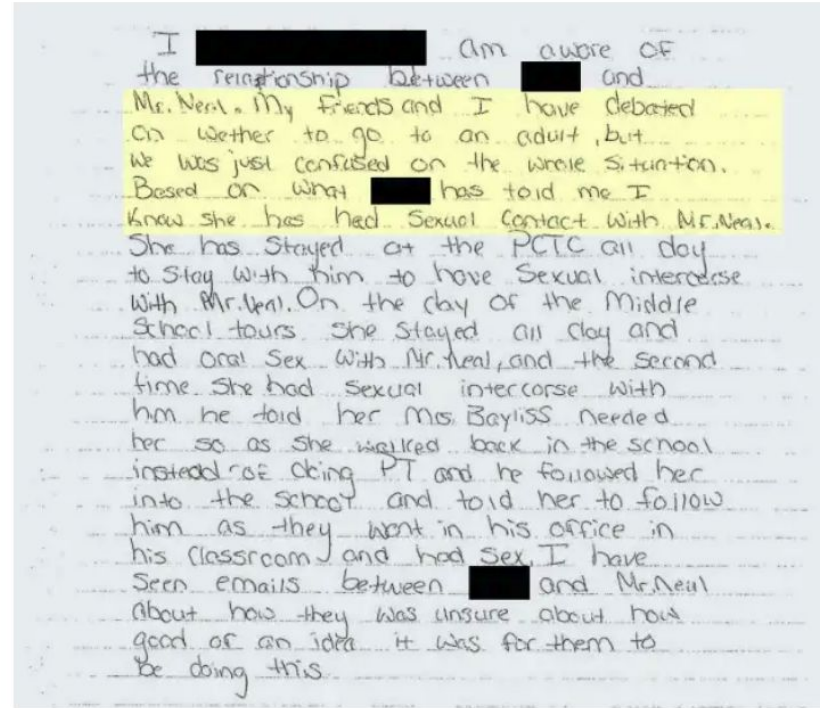 I am aware of
the relationship between and
Mr. Neal. My friends and I have debated
on wether to go to an adult, but
we was just confused on the whole situation.
Based on what has told me I
know she has had sexual contact with Mr. Neal.
She has stayed at the PCTC all day
to stay with him to have sexual intercorse
with Mr. Neal. On the day of the middle
school tours she stayed all day and
had oral sex with Mr. Neal, and the second
time she had sexual intercorse with
him he told her Mrs. Bayliss needed
her so as she walked back in the school
instead of doing PT and he followed her
into the school and told her to follow
him as they went in his office in
his classroom and had sex. I have
seen emails between and Mr. Neal
about how they was unsure about how
good of an idea it was for them to
be doing this